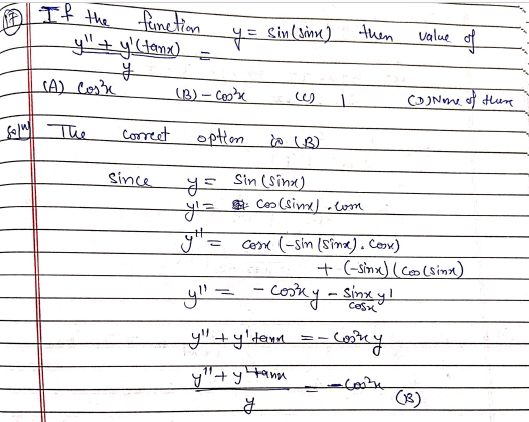 (17) If the function y = sin(sinx) then value of
y'' + y'(tanx) / y =
(A) cos²x (B) - cos²x (C) 1 (D) None of these
Solⁿ The correct option is (B)
Since y = sin(sinx)
y' = cos(sinx) . cosx
y'' = cosx (-sin(sinx). cosx)
+ (-sinx) (cos(sinx)
y'' = - cos²x y - sinx/cosx y'
y'' + y' tanx = - cos²x y
y'' + y' tanx / y = - cos²x (B)